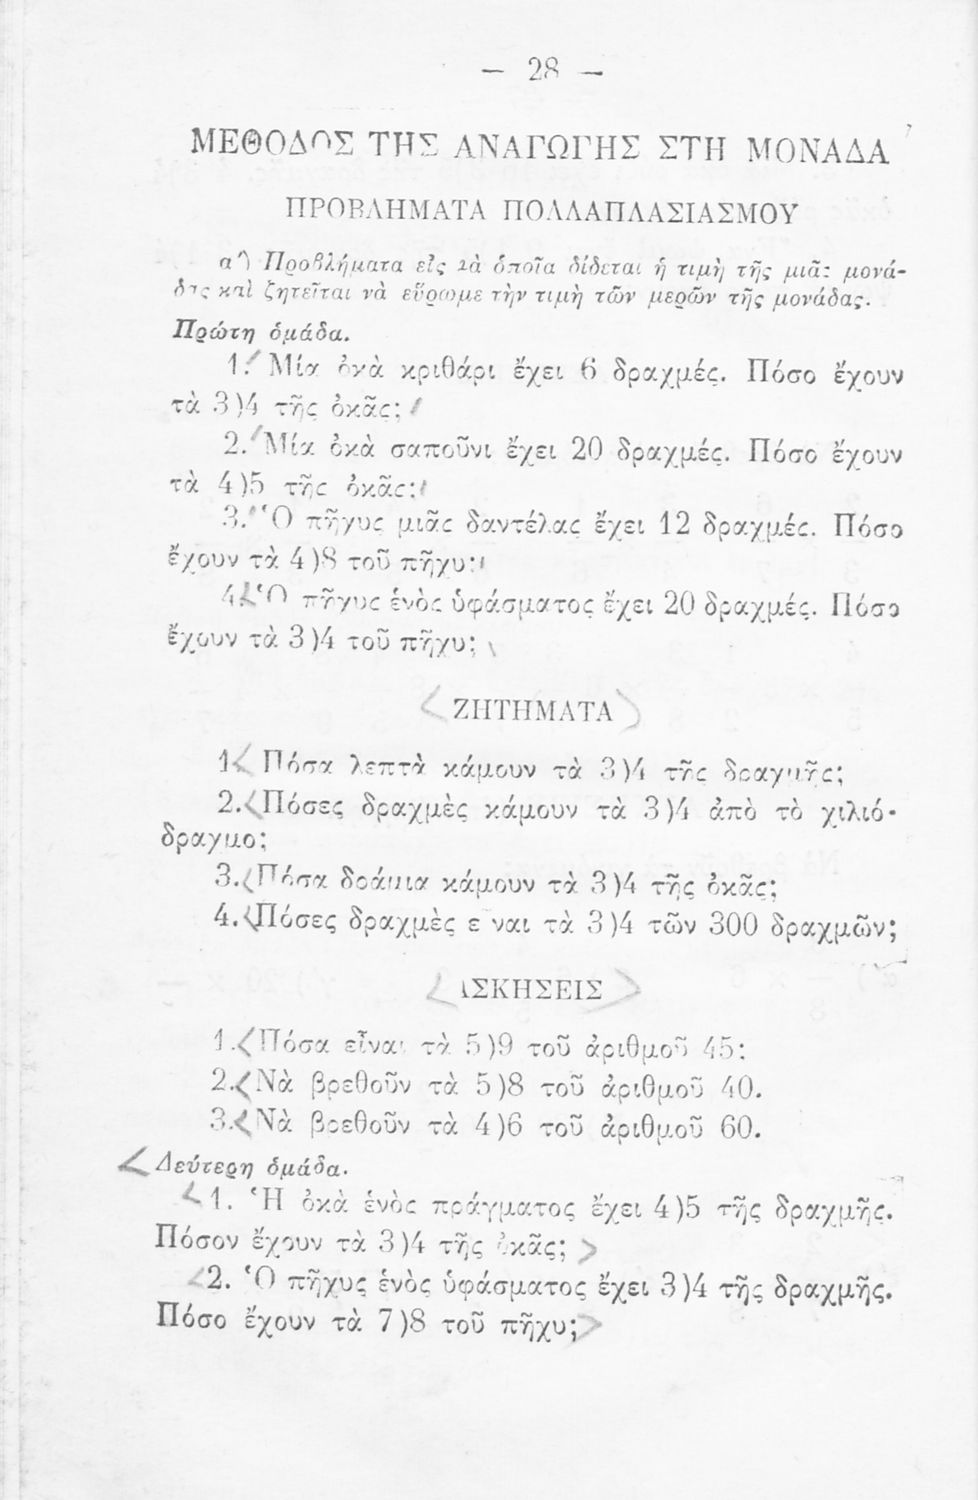 — 28 —
ΜΕΘΟΔΟΣ ΤΗΣ ΑΝΑΓΩΓΗΣ ΣΤΗ ΜΟΝΑΔΑ
ΠΡΟΒΛΗΜΑΤΑ ΠΟΛΛΑΠΛΑΣΙΑΣΜΟΥ
α') Προβλήματα εἰς τὰ ὁποῖα δίδεται ἡ τιμὴ τῆς μιᾶς μονά-
δας καὶ ζητεῖται νὰ εὕρωμε τὴν τιμὴ τῶν μερῶν τῆς μονάδας.
Πρώτη ὁμάδα.
1. Μία ὀκὰ κριθάρι ἔχει 6 δραχμές. Πόσο ἔχουν
τὰ 3)4 τῆς ὀκᾶς;
2. Μία ὀκὰ σαποῦνι ἔχει 20 δραχμές. Πόσο ἔχουν
τὰ 4)5 τῆς ὀκᾶς;
3. Ὁ πῆχυς μιᾶς δαντέλας ἔχει 12 δραχμές. Πόσο
ἔχουν τὰ 4)8 τοῦ πῆχυ;
4. Ὁ πῆχυς ἑνὸς ὑφάσματος ἔχει 20 δραχμές. Πόσο
ἔχουν τὰ 3)4 τοῦ πῆχυ;
ΖΗΤΗΜΑΤΑ
1. Πόσα λεπτὰ κάμουν τὰ 3)4 τῆς δραχμῆς;
2. Πόσες δραχμὲς κάμουν τὰ 3)4 ἀπὸ τὸ χιλιό-
δραχμο;
3. Πόσα δράμια κάμουν τὰ 3)4 τῆς ὀκᾶς;
4. Πόσες δραχμὲς εἶναι τὰ 3)4 τῶν 300 δραχμῶν;
ΑΣΚΗΣΕΙΣ
1. Πόσα εἶναι τὰ 5)9 τοῦ ἀριθμοῦ 45;
2. Νὰ βρεθοῦν τὰ 5)8 τοῦ ἀριθμοῦ 40.
3. Νὰ βρεθοῦν τὰ 4)6 τοῦ ἀριθμοῦ 60.
Δεύτερη ὁμάδα.
1. Ἡ ὀκὰ ἑνὸς πράγματος ἔχει 4)5 τῆς δραχμῆς.
Πόσον ἔχουν τὰ 3)4 τῆς ὀκᾶς;
2. Ὁ πῆχυς ἑνὸς ὑφάσματος ἔχει 3)4 τῆς δραχμῆς.
Πόσο ἔχουν τὰ 7)8 τοῦ πῆχυ;